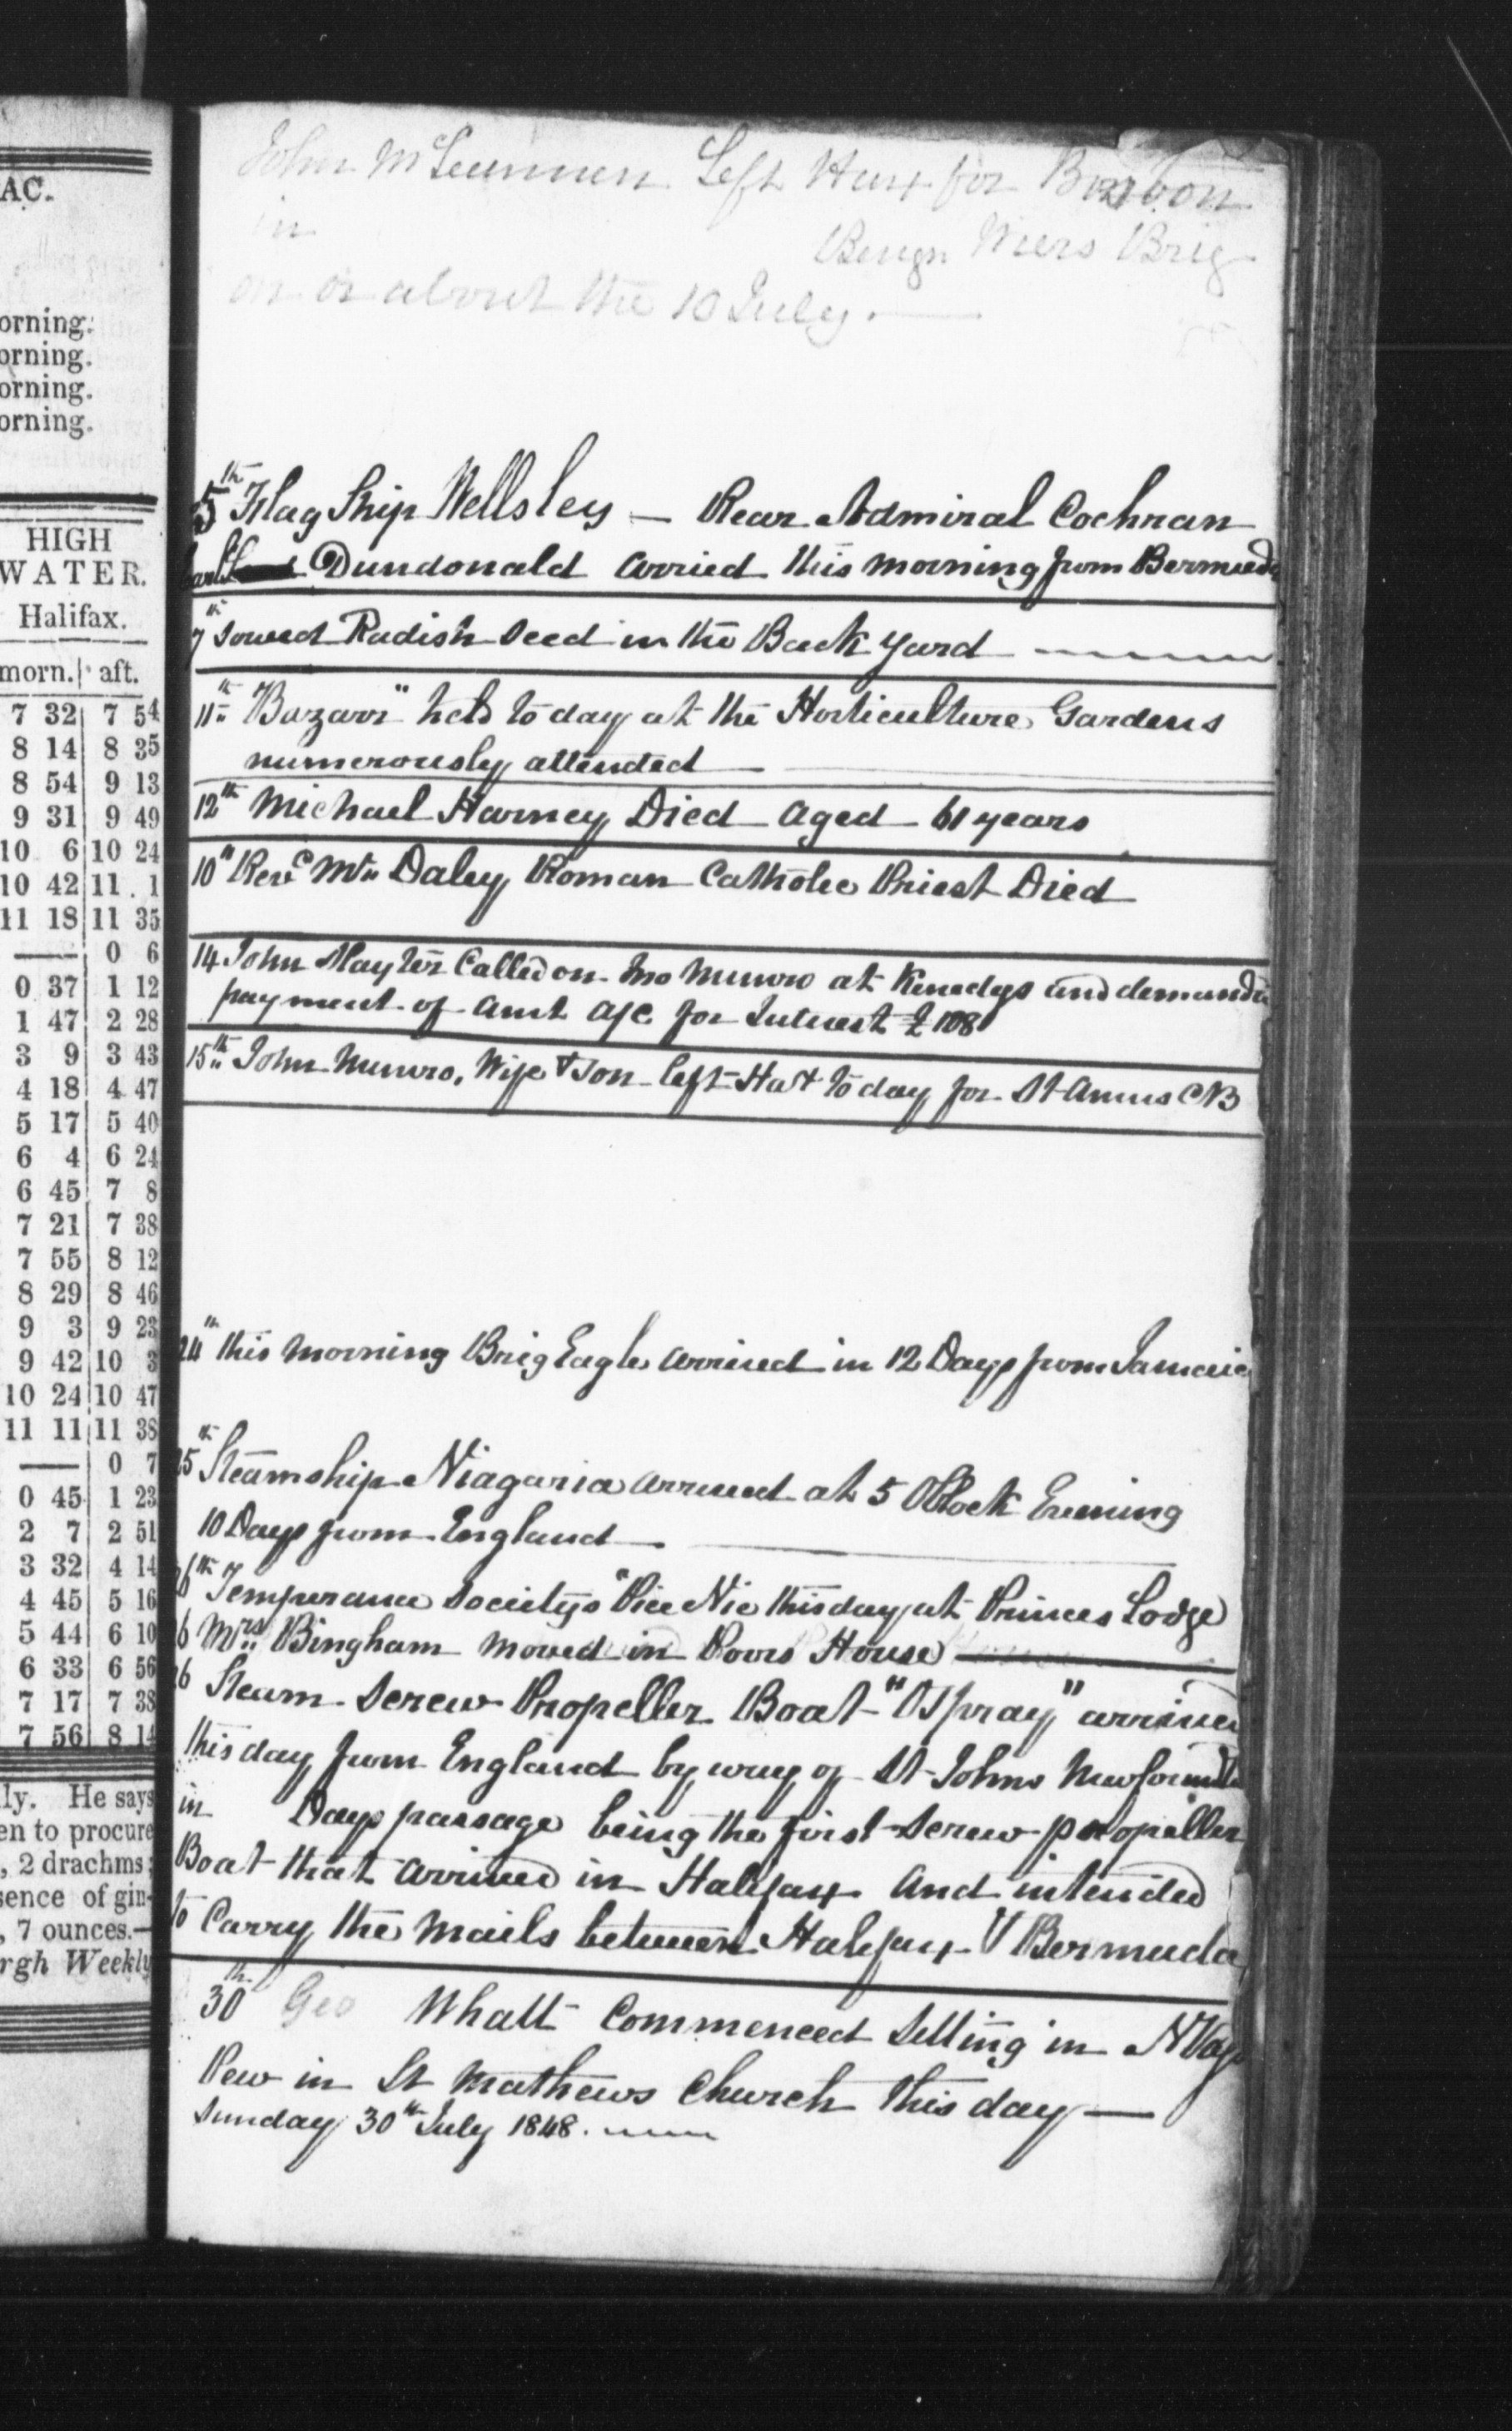 AC.
orning.
orning.
orning.
orning.
HIGH
WATER.
Halifax.
morn. aft.
7 32 7 54
8 14 8 35
8 54 9 13
9 31 9 49
10 6 10 24
10 42 11 1
11 18 11 35
— 0 6
0 37 1 12
1 47 2 28
3 9 3 43
4 18 4 47
5 17 5 40
6 4 6 24
6 45 7 8
7 21 7 38
7 55 8 12
8 29 8 46
9 3 9 23
9 42 10 3
10 24 10 47
11 11 11 38
— 0 7
0 45 1 23
2 7 2 51
3 32 4 14
4 45 5 16
5 44 6 10
6 33 6 56
7 17 7 38
7 56 8 14
ly. He says
en to procure
, 2 drachms;
sence of gin-
, 7 ounces.—
rgh Weekly
John Left Hax for
in Brig
on or about the 10 July. —
5th Flag Ship Wellsley — Rear Admiral Cochran
Dundonald arried this morning from Bermuda
7th sowed Radish seed in the Back yard
11th "Bazarr" held to day at the Horticulture Gardens
numerously attended
12th Michael Harney Died aged 61 years
10th Revd Mr Daley Roman Catholic Priest Died
14 John Slayter Called on Jno Munro at Kenedys and demanded
payment of amt a/c for Interest £108
15th John Munro, Wife & Son left Hax to day for St Anns CB
24th this morning Brig Eagle arrived in 12 Days from Jamaic
25th Steamship Niagaria arrived at 5 OClock Evening
10 Days from England
26th Temperance societys "Pic Nic this day at Princes Lodge
26 Mrs Bingham moved in Poors House
26 Steam Screw Propeller Boat "Ospray" arrived
this day from England by way of St Johns Newfoundl
in Days passage being the first screw propeller
Boat that arrived in Halifax and intended
to Carry the mails between Halifax & Bermuda
30th Geo Whatt Commenced Setting in
Pew in St Mathews Church this day —
Sunday 30th July 1848.